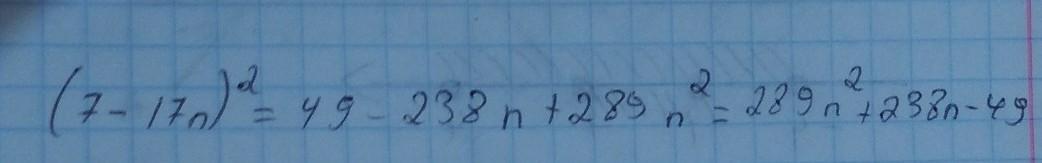 (7-17n)² = 49 - 238n + 289n² = 289n² + 238n - 49